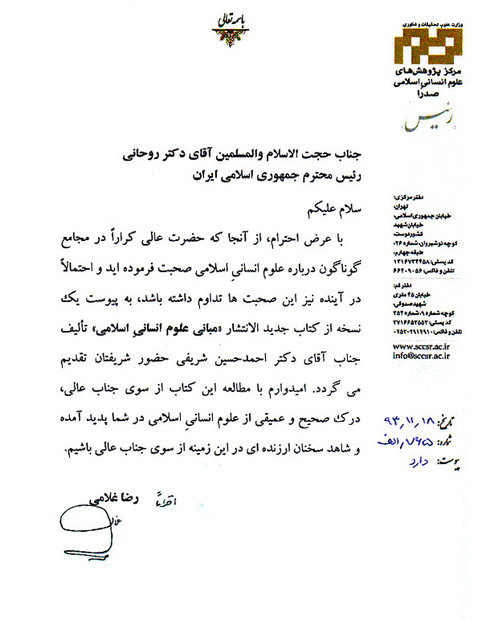 باسمه تعالی
وزارت علوم، تحقیقات و فناوری
مرکز پژوهش‌های
علوم انسانی اسلامی
صدرا
رئیس
جناب حجت الاسلام والمسلمین آقای دکتر روحانی
رئیس محترم جمهوری اسلامی ایران
سلام علیکم
با عرض احترام، از آنجا که حضرت عالی کراراً در مجامع
گوناگون درباره علوم انسانیِ اسلامی صحبت فرموده اید و احتمالاً
در آینده نیز این صحبت ها تداوم داشته باشد، به پیوست یک
نسخه از کتاب جدید الانتشار «مبانی علوم انسانیِ اسلامی» تألیف
جناب آقای دکتر احمدحسین شریفی حضور شریفتان تقدیم
می گردد. امیدوارم با مطالعه این کتاب از سوی جناب عالی،
درک صحیح و عمیقی از علوم انسانیِ اسلامی در شما پدید آمده
و شاهد سخنان ارزنده ای در این زمینه از سوی جناب عالی باشیم.
رضا غلامی
دفتر مرکزی:
تهران،
خیابان جمهوری اسلامی،
خیابان شهید
کشوردوست،
کوچه نوشیروان، شماره ۲۶
طبقه چهارم،
کد پستی: ۱۳۱۶۷۳۴۴۵۸
تلفن و فاکس: ۶۶۴۰۹۰۵۶
دفتر قم:
خیابان ۴۵ متری
شهید صدوقی،
کوچه شماره ۹، شماره ۲۵۴
کد پستی: ۳۷۱۶۶۵۳۵۵۳
تلفن و فاکس: ۰۲۵۲-۲۹۱۲۹۱
www.sccsr.ac.ir
info@sccsr.ac.ir
تاریخ: ۹۳,۱۱,۱۸
شماره: ۷۶۵,الف
پیوست: دارد